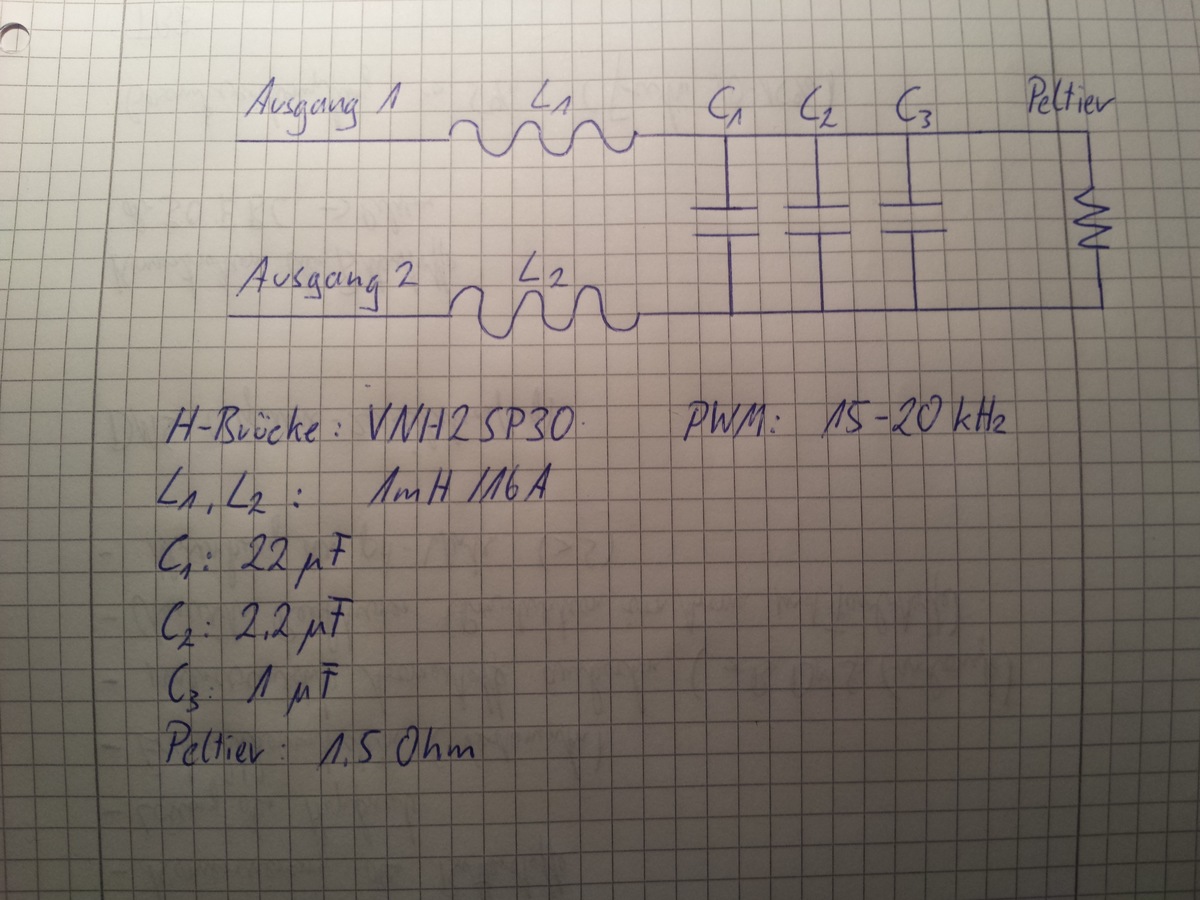 Ausgang 1 L1 C1 C2 C3 Peltier
Ausgang 2 L2
H-Brücke: VNH2SP30 PWM: 15-20 kHz
L1, L2: 1mH / 16A
C1: 22 µF
C2: 2.2 µF
C3: 1 µF
Peltier: 1.5 Ohm